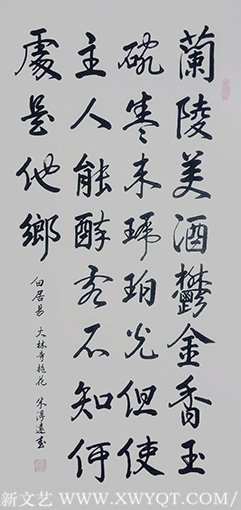 蘭陵美酒鬱金香玉
碗盛来琥珀光但使
主人能醉客不知何
處是他鄉
白居易 大林寺桃花
新文艺 WWW.XWYQT.COM/